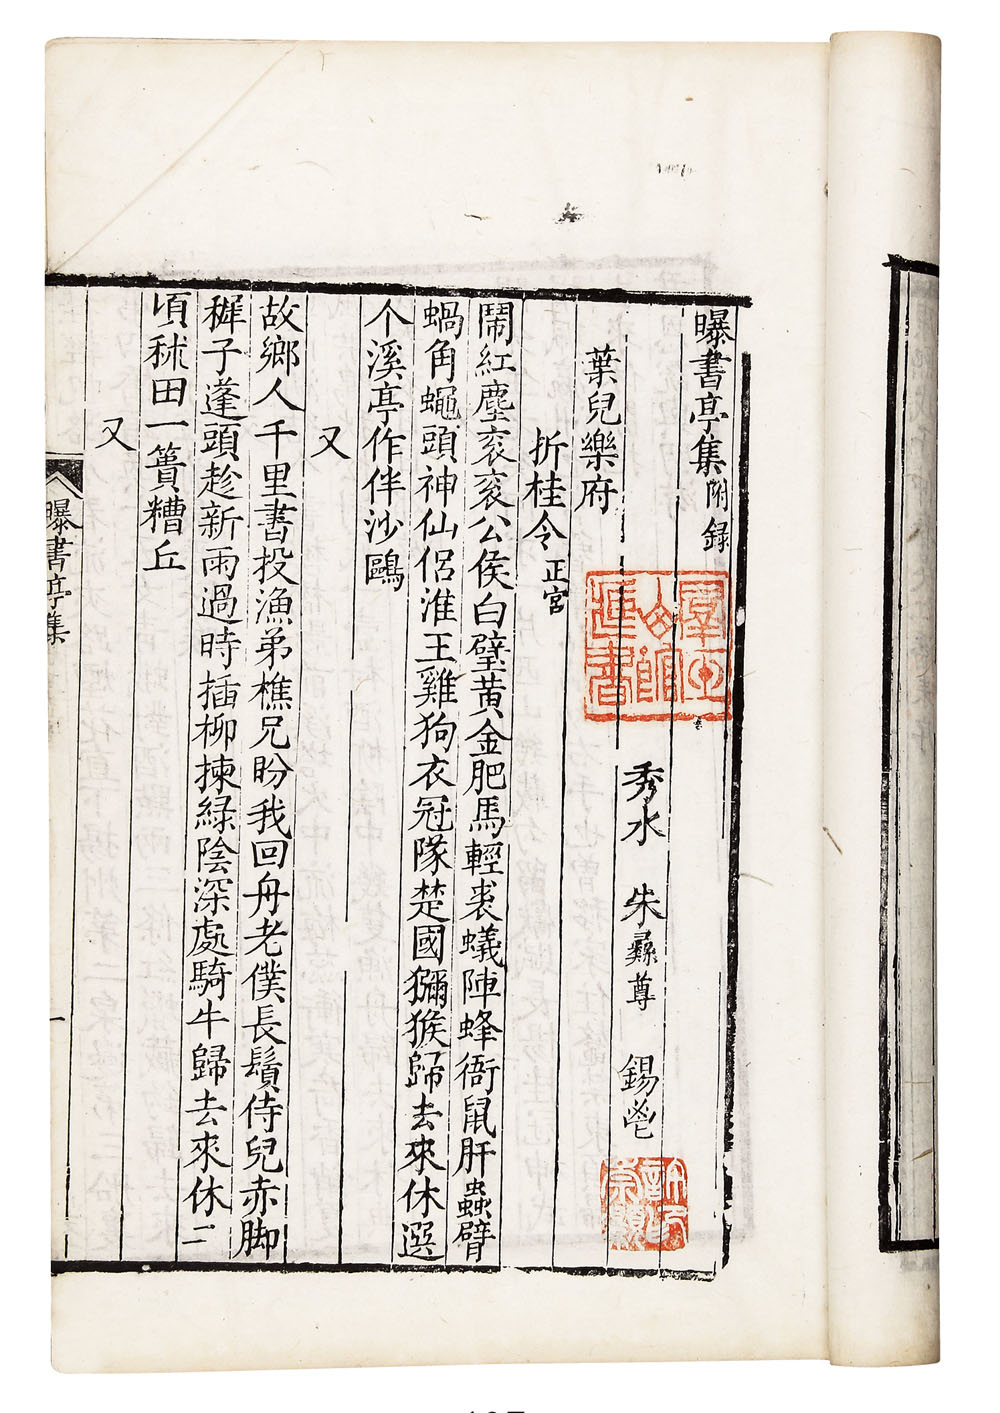 曝書亭集附録
秀水　朱彝尊　錫鬯
葉兒樂府
折桂令正宮
鬧紅塵衮衮公侯白璧黄金肥馬輕裘蟻陣蜂衙鼠肝蟲臂
蝸角蠅頭神仙侶淮王雞狗衣冠隊楚國獼猴歸去來休選
个溪亭作伴沙鷗
又
故鄉人千里書投漁弟樵兄盼我回舟老僕長鬚侍兒赤脚
穉子蓬頭趁新雨過時插柳揀緑陰深處騎牛歸去來休二
頃秫田一簣糟丘
又
曝書亭集
一